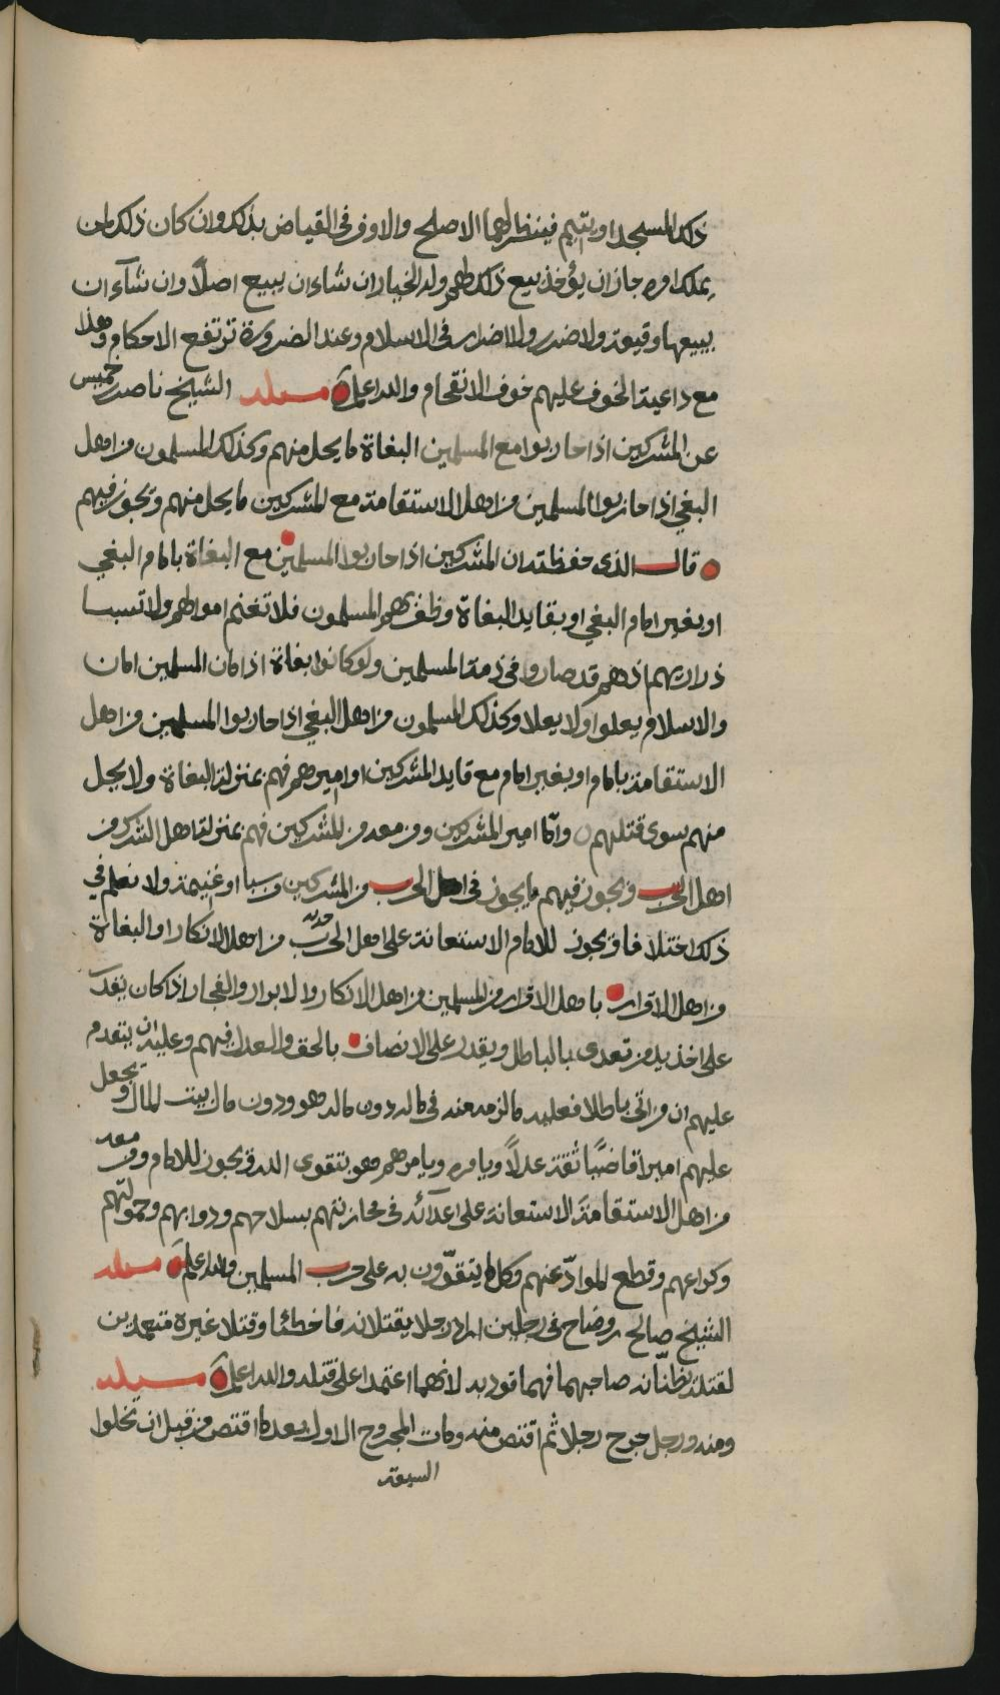 ذلك لمسجد او يتيم فينظر لهما الاصلح والاوفر في القياض بذلك وان كان ذلك لمن
يملك امره جاز ان يؤخذ بيع ذلك لهم وله الخيار ان شاء ان يبيع اصلاً وان شآء ان
يبيعها وقيعة ولا ضرر ولا اضرار في الاسلام وعند الضرورة ترتفع الاحكام وهذا
مع داعية الخوف عليهم خوف الانقحام والله اعلم مسئلة الشيخ ناصر بن خميس
عن المشركين اذا حاربوا مع المسلمين البغاة ما يحل منهم وكذلك المسلمون من اهل
البغي اذا حاربوا المسلمين من اهل الاستقامة مع المشركين ما يحل منهم ويجوز فيهم
قال الذي حفظته ان المشركين اذا حاربوا المسلمين مع البغاة بامام البغي
او بغير امام البغي او بقايد البغاة وظفر بهم المسلمون فلا تغنم اموالهم ولا تسبا
ذراريهم اذ هم قد صاروا في ذمة المسلمين ولو كانوا بغاة اذ امان المسلمين امان
والاسلام يعلوا ولا يعلا وكذلك المسلمون من اهل البغي اذا حاربوا المسلمين من اهل
الاستقامة بامام او بغير امام مع قايد المشركين او اميرهم فهم بمنزلة البغاة ولا يحل
منهم سوى قتلهم واما امير المشركين ومن معه من المشركين فهم بمنزلة اهل الشرك من
اهل الحرب ويجوز فيهم ما يجوز في اهل الحرب من المشركين من سبا او غنيمة ولا نعلم في
ذلك اختلافا ويجوز للامام الاستعانة على اهل الحرب من اهل الانكار او البغاة
من اهل الاقرار باهل الاقرار من المسلمين من اهل الانكار والابرار والفجار اذا كان يقدر
على اخذ يد من تعدى بالباطل ويقدر على الانصاف بالحق والعدل فيهم وعليه ان يتقدم
عليهم ان من اتى باطلا فعليه ما لزمه منه في ماله دون ماله هو ودون مال بيت المال ويجعل
عليهم اميرا قاضيًا ثقة عدلاً ويامره ويامرهم هو بتقوى الله ويجوز للامام ومن معه
من اهل الاستقامة الاستعانة على اعدآئه في محاربتهم بسلاحهم ودوابهم وحمولتهم
وكراعهم وقطع المواد عنهم وكل ما يتقوّون به على حرب المسلمين والله اعلم مسئلة
الشيخ صالح بن وضاح في رجلين ارادا رجلا يقتلانه فاخطئا وقتلا غيره متعمدين
لقتله يظنا انه صاحبهما فهما قود به لانهما اعتمدا على قتله والله اعلم مسئلة
ومنه ورجل جرح رجلا ثم اقتص منه ومات المجروح الاول بعد ما اقتص من قبل ان تخلوا
السبعة